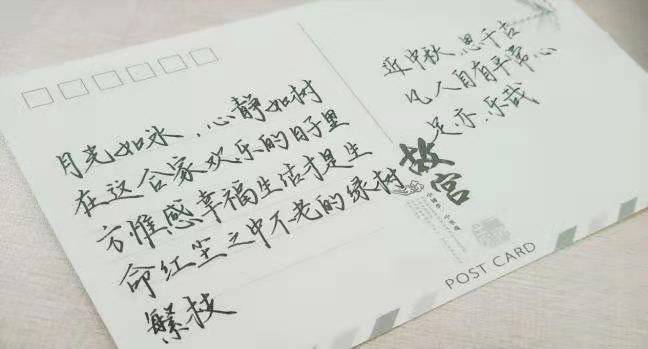 月光如水，心静如树
在这合家欢乐的日子里
方惟感幸福生活才是生
命红尘之中不老的绿树
繁枝
近中秋，思千古
凡人自有平常心
足亦乐哉
故宫
POST CARD